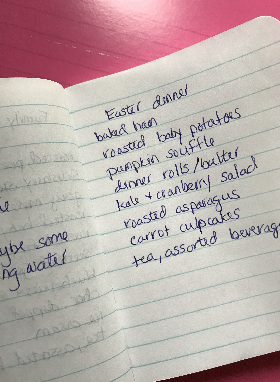 Easter dinner
baked ham
roasted baby potatoes
pumpkin souffle
dinner rolls/butter
kale + cranberry salad
roasted asparagus
carrot cupcakes
tea, assorted beverag
ybe some
ng water